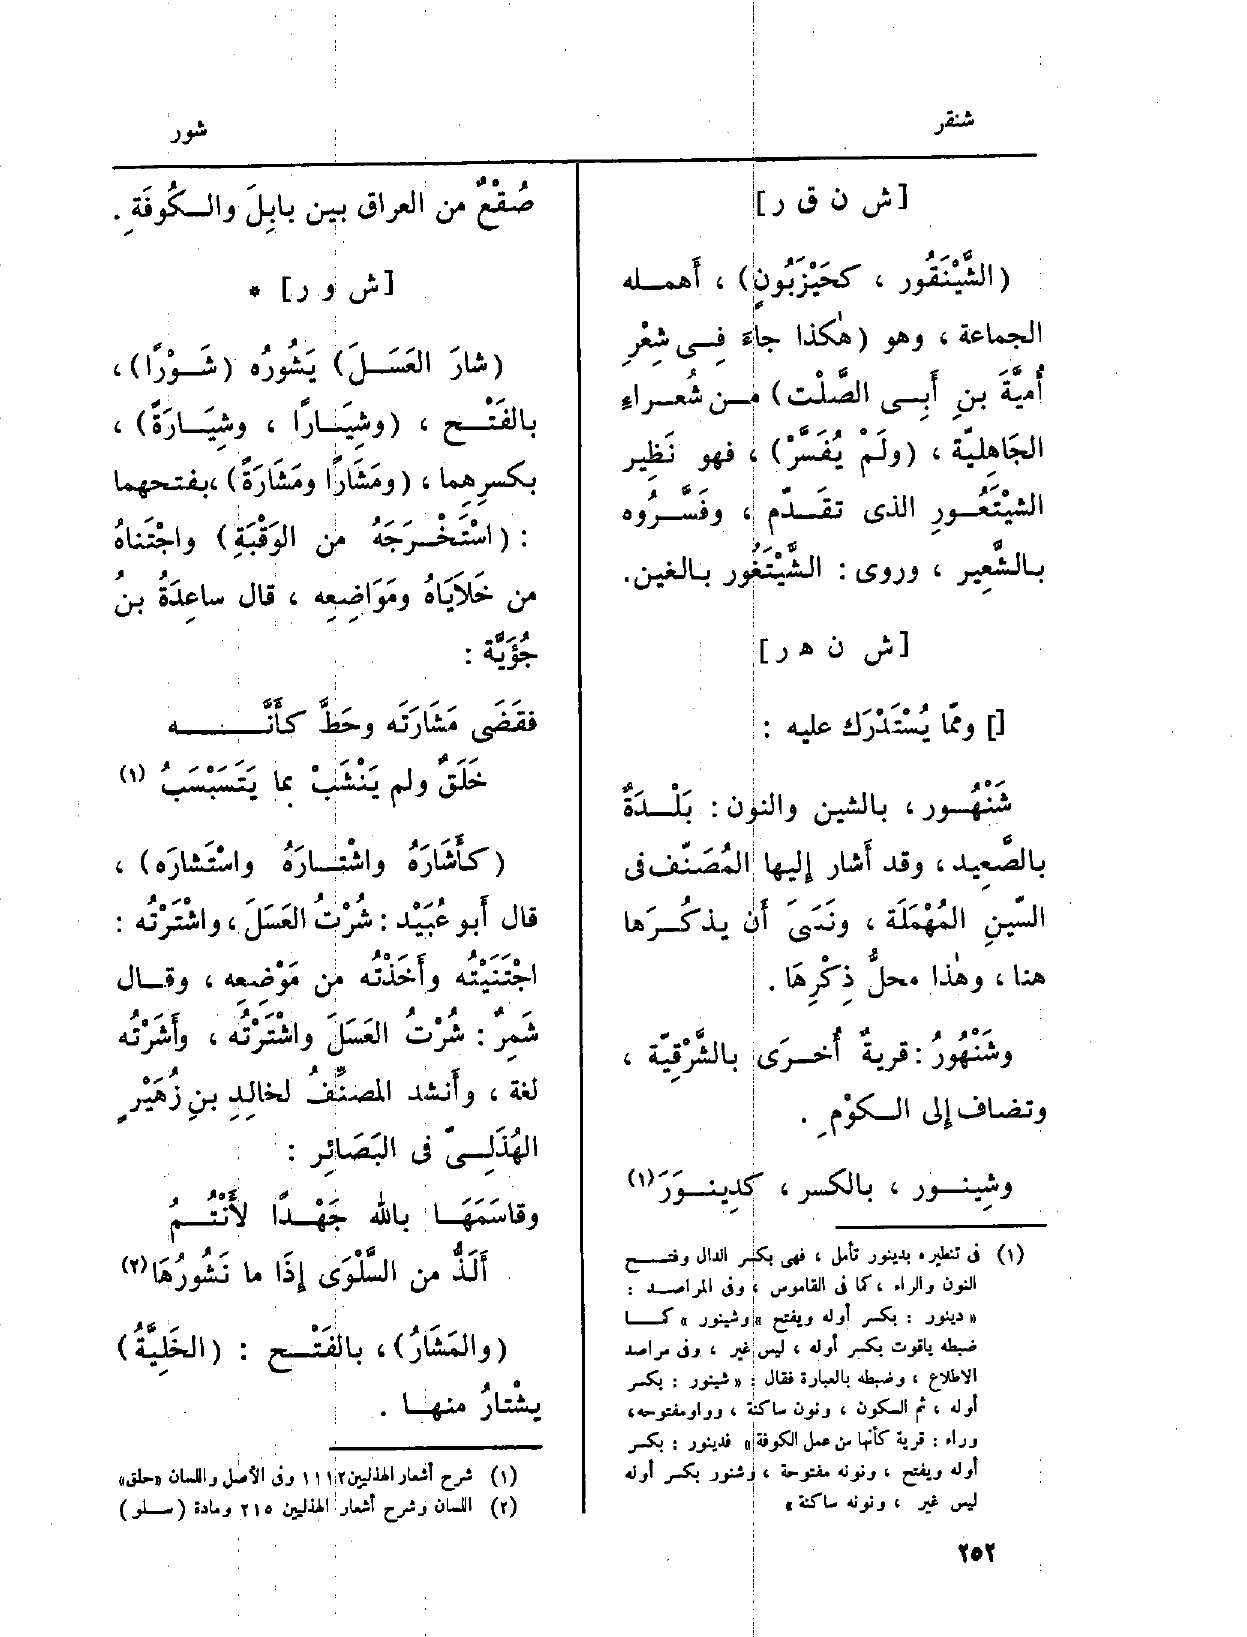 شنقر
شور
[ش ن ق ر]
(الشَّيْنَقُور ، كحَيْزَبُونٍ) ، أَهمــله
الجماعة ، وهو (هٰكذا جاءَ فِــى شِعْرِ
أُمَيَّةَ بنِ أَبِــى الصَّلْت) مــن شُعــراءِ
الجَاهِليّة ، (ولَمْ يُفَسَّرْ) ، فهو نَظِير
الشَّيْتَعُــورِ الذى تقَــدّم ، وفَسَّــرُوه
بــالشَّعِير ، وروى : الشَّيْتَغُور بــالغين.
[ش ن ه ر]
[] وممّا يُسْتَدْرَك عليه :
شَنْهُــور ، بالشين والنون : بَلْــدَةٌ
بالصَّعِيد ، وقد أَشار إِليها المُصَنّف فى
السّينِ المُهْمَلَة ، ونَسَىَ أَن يذكُــرَها
هنا ، وهٰذا محلُّ ذِكْرِهَا .
وشَنْهُورُ : قريةٌ أُخــرَى بالشَّرْقِيّة ،
وتضاف إِلى الــكَوْمِ .
وشِينــور ، بالكسر ، كدِينــوَرَ(١)
(١) فى تنظيره بدينور تأمل ، فهى بكسر الدال وفتــح
النون والراء ، كما فى القاموس ، وفى المراصــد :
« دينور : بكسر أوله ويفتح » وشينور » كــا
ضبطه ياقوت بكسر أوله ، ليس غير ، وفى مراصد
الاطلاع ، وضبطه بالعبارة فقال : « شينور : بكسر
أوله ، ثم السكون ، ونون ساكنة ، وواو مفتوحة ،
وراء : قرية كأنها من عمل الكوفة » فدينور : بكسر
أوله ويفتح ، ونونه مفتوحة ، وشنور بكسر أوله
ليس غير ، ونونه ساكنة »
صُقْعٌ من العراق بين بابِلَ والــكُوفَةِ .
[ش و ر] *
(شارَ العَسَــلَ) يَشُورُه (شَــوْرًا) ،
بالفَتْــح ، (وشِيَــارًا ، وشِيَــارَةً) ،
بكسرِهِما ، (ومَشَارًا ومَشَارَةً) ، بفتحهما
: (اسْتَخْــرَجَهُ من الوَقْبَةِ) واجْتَناهُ
من خَلَايَاهُ ومَوَاضِعِه ، قال ساعِدَةُ بنُ
جُؤَيَّة :
فقَضَى مَشَارَتَه وحَطَّ كأَنَّــــه
خَلَقٌ ولم يَنْشَبْ بما يَتَسَبْسَبُ (١)
(كأَشَارَهُ واشْتــارَهُ واسْتَشارَه) ،
قال أَبو عُبَيْد : شُرْتُ العَسَلَ ، واشْتَرْتُه :
اجْتَنَيْتُه وأَخَذْتُه من مَوْضِعِه ، وقــال
شَمِرٌ : شُرْتُ العَسَلَ واشْتَرْتُه ، وأَشَرْتُه
لغة ، وأَنشد المصنِّفُ لخالِدِ بنِ زُهَيْرٍ
الهُذَلِــىّ فى البَصَائِر :
وقاسَمَهَــا بالله جَهْــدًا لأَنْتُــمُ
أَلَذُّ من السَّلْوَى إِذَا ما نَشُورُهَا (٢)
(والمَشَارُ) ، بالفَتْــح : (الخَلِيَّةُ)
يشْتارُ منهــا .
(١) شرح أشعار الهذليين ١١١٢ وفى الأصل واللسان «حلق»
(٢) اللسان وشرح أشعار الهذليين ٢١٥ ومادة (ســلو)
٢٥٢